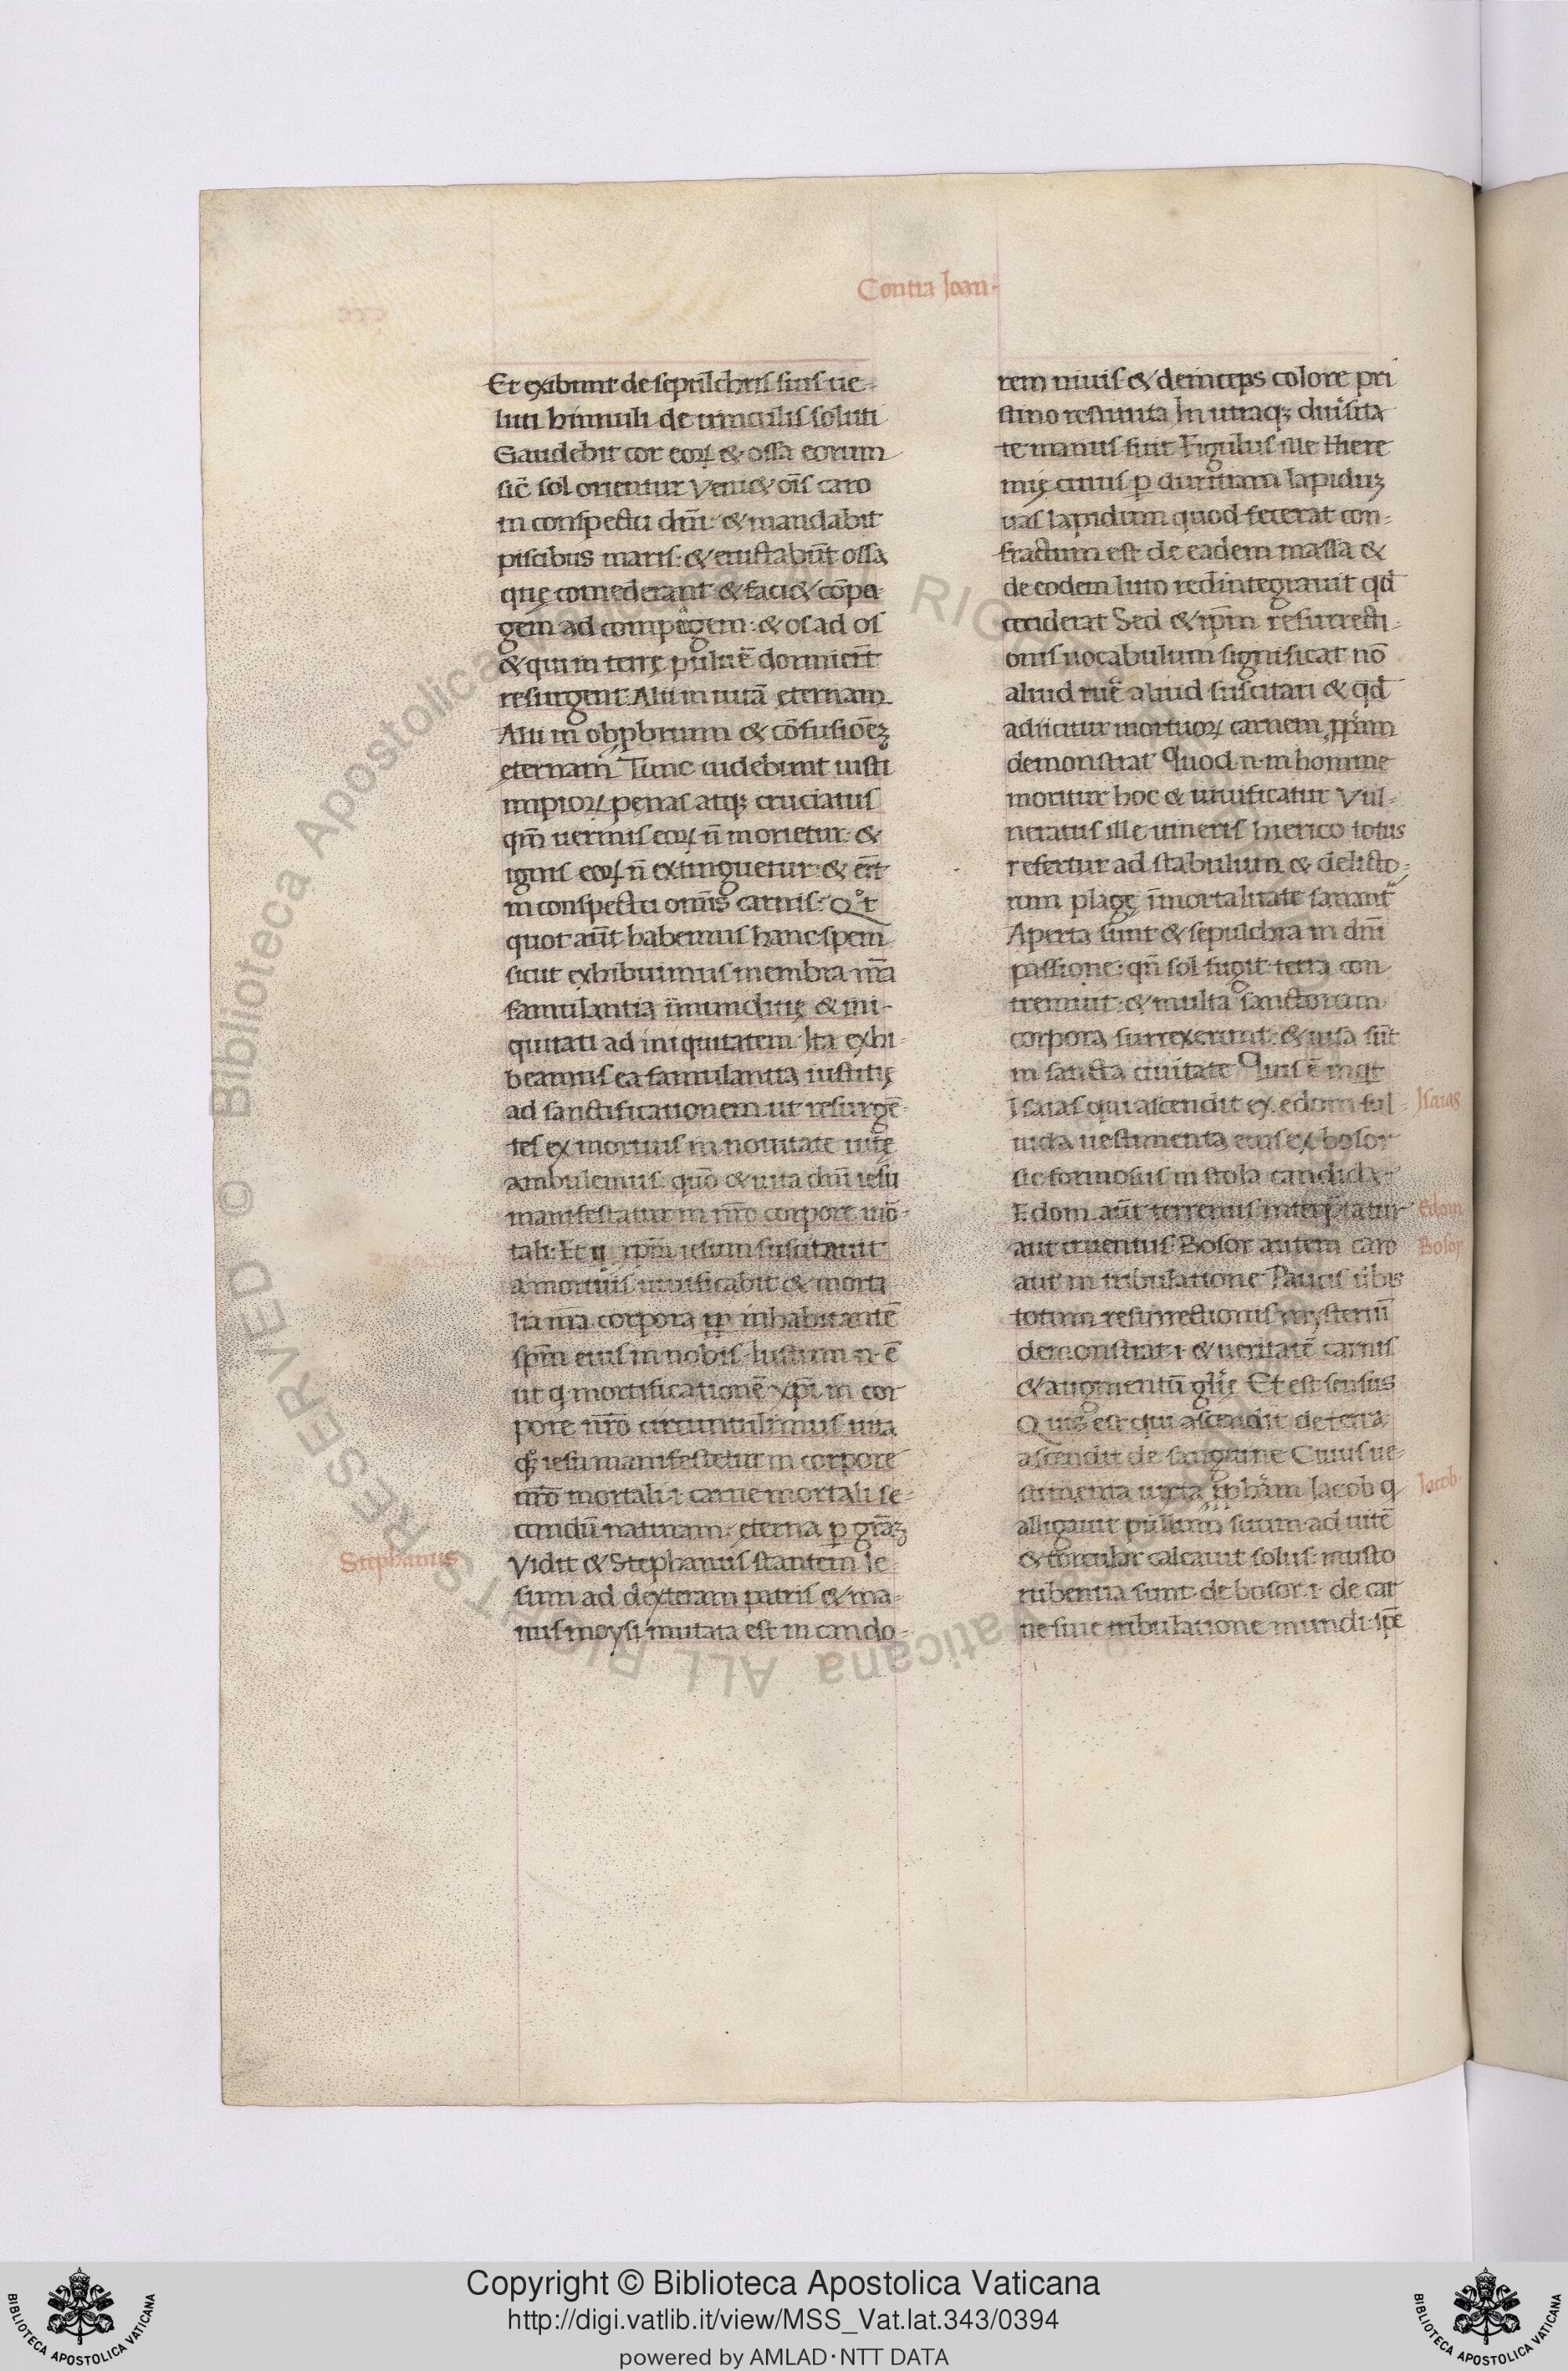 Contra Joan·
Et exibunt de sepulchris suis ue-
luti hinnuli de uinculis soluti
Gaudebit cor eoꝝ & ossa eorum
sic̄ sol orientur Veni& oı̄s caro
in conspectu dn̄i: & mandabit
piscibus maris: & eructabūt ossa
quę comederant & faci& cōpa-
gem ad compagem: & os ad os
& qui in terrę puluē dormier̄t
resurgent Alii in uitā ęternam
Alii in obꝓbrium & cōfusiōeꝫ
ęternam Tunc uidebunt iusti
impioꝝ penas atqꝫ cruciatus
qm̄ uermis eoꝝ n̄ morietur: &
ignis eoꝝ n̄ extinguetur: & er̄t
in conspectu omīs carnis: Qͦt
quot aūt habemus hanc spem
sicut exhibuimus membra nr̄a
famulantia īmunditię & ini-
quitati ad iniquitatem Ita exhi-
beamus ea famulantia iustitię
ad sanctificationem ut resurgē-
tes ex mortuis in nouitate uitę
ambulemus quō & uita dn̄i iesu
manifestatur in nr̄o corpore mō-
tali: Et q xpm̄ iesum suscitauit
a mortuis uiuificabit & morta
lia nr̄a corpora ꝓp inhabitantē
spm̄ eius in nobis Iustum n̄ ē
ut q mortificationē xpı̄ in cor
pore nr̄o circumtulimus uita
qꝫ iesu manifestetur in corpore
nr̄o mortali·i· carne mortali se-
cundū naturam: ęterna ꝑ grāꝫ
Stephanus
Vidit & Stephanus stantem Ie-
sum ad dexteram patris & ma-
nus moysi mutata est in cando-
rem niuis & deinceps colore pri
stino restituta In utraqꝫ diuſita
te manus fuit Figulus ille Hiere
mię cuius ꝑ duritiam lapiduꝫ
uas lapidum quod fecerat con-
fractum est de eadem massa &
de eodem luto redintegrauit qd̄
ceciderat Sed & ipm̄ resurrecti-
onis uocabulum significat nō
aliud ruē aliud suscitari & qd̄
adiicitur mortuoꝝ carnem ꝓpͥam
demonstrat Quod·n·in homine
moritur hoc & uiuificatur Vul-
neratus ille itineris hierico totus
refertur ad stabulum & delicto-
rum plagę īmortalitate sanant
Aperta sunt & sepulchra in dn̄i
passione: qn̄ sol fugit terra con
tremuit: & multa sanctorum
corpora surrexerunt: & uisa sūt
in sancta ciuitate Quis ē inqt
Isaias qui ascendit ex edom ful-
Isaias
uida uestimenta eius ex bosor
sic formosus in stola candida
Edom aūt terrenus interp̄tatur
Edom
aut cruentus Bosor autem caro
Bosor
aut in tribulatione Paucis uerbis
totum resurrectionis mysteriū
demonstrat·i· & ueritatē carnis
& augmentū glı̄ę Et est sensus
Quis est qui ascendit de terra
ascendit de sanguine Cuius ue-
stimenta iuxta ꝓph&am Iacob q
Jacob·
alligauit pullum suum ad uitē
& torcular calcauit solus: musto
rubentia sunt de bosor·i· de car
ne siue tribulatione mundi: ip̄e
Copyright © Biblioteca Apostolica Vaticana
http://digi.vatlib.it/view/MSS_Vat.lat.343/0394
powered by AMLAD·NTT DATA